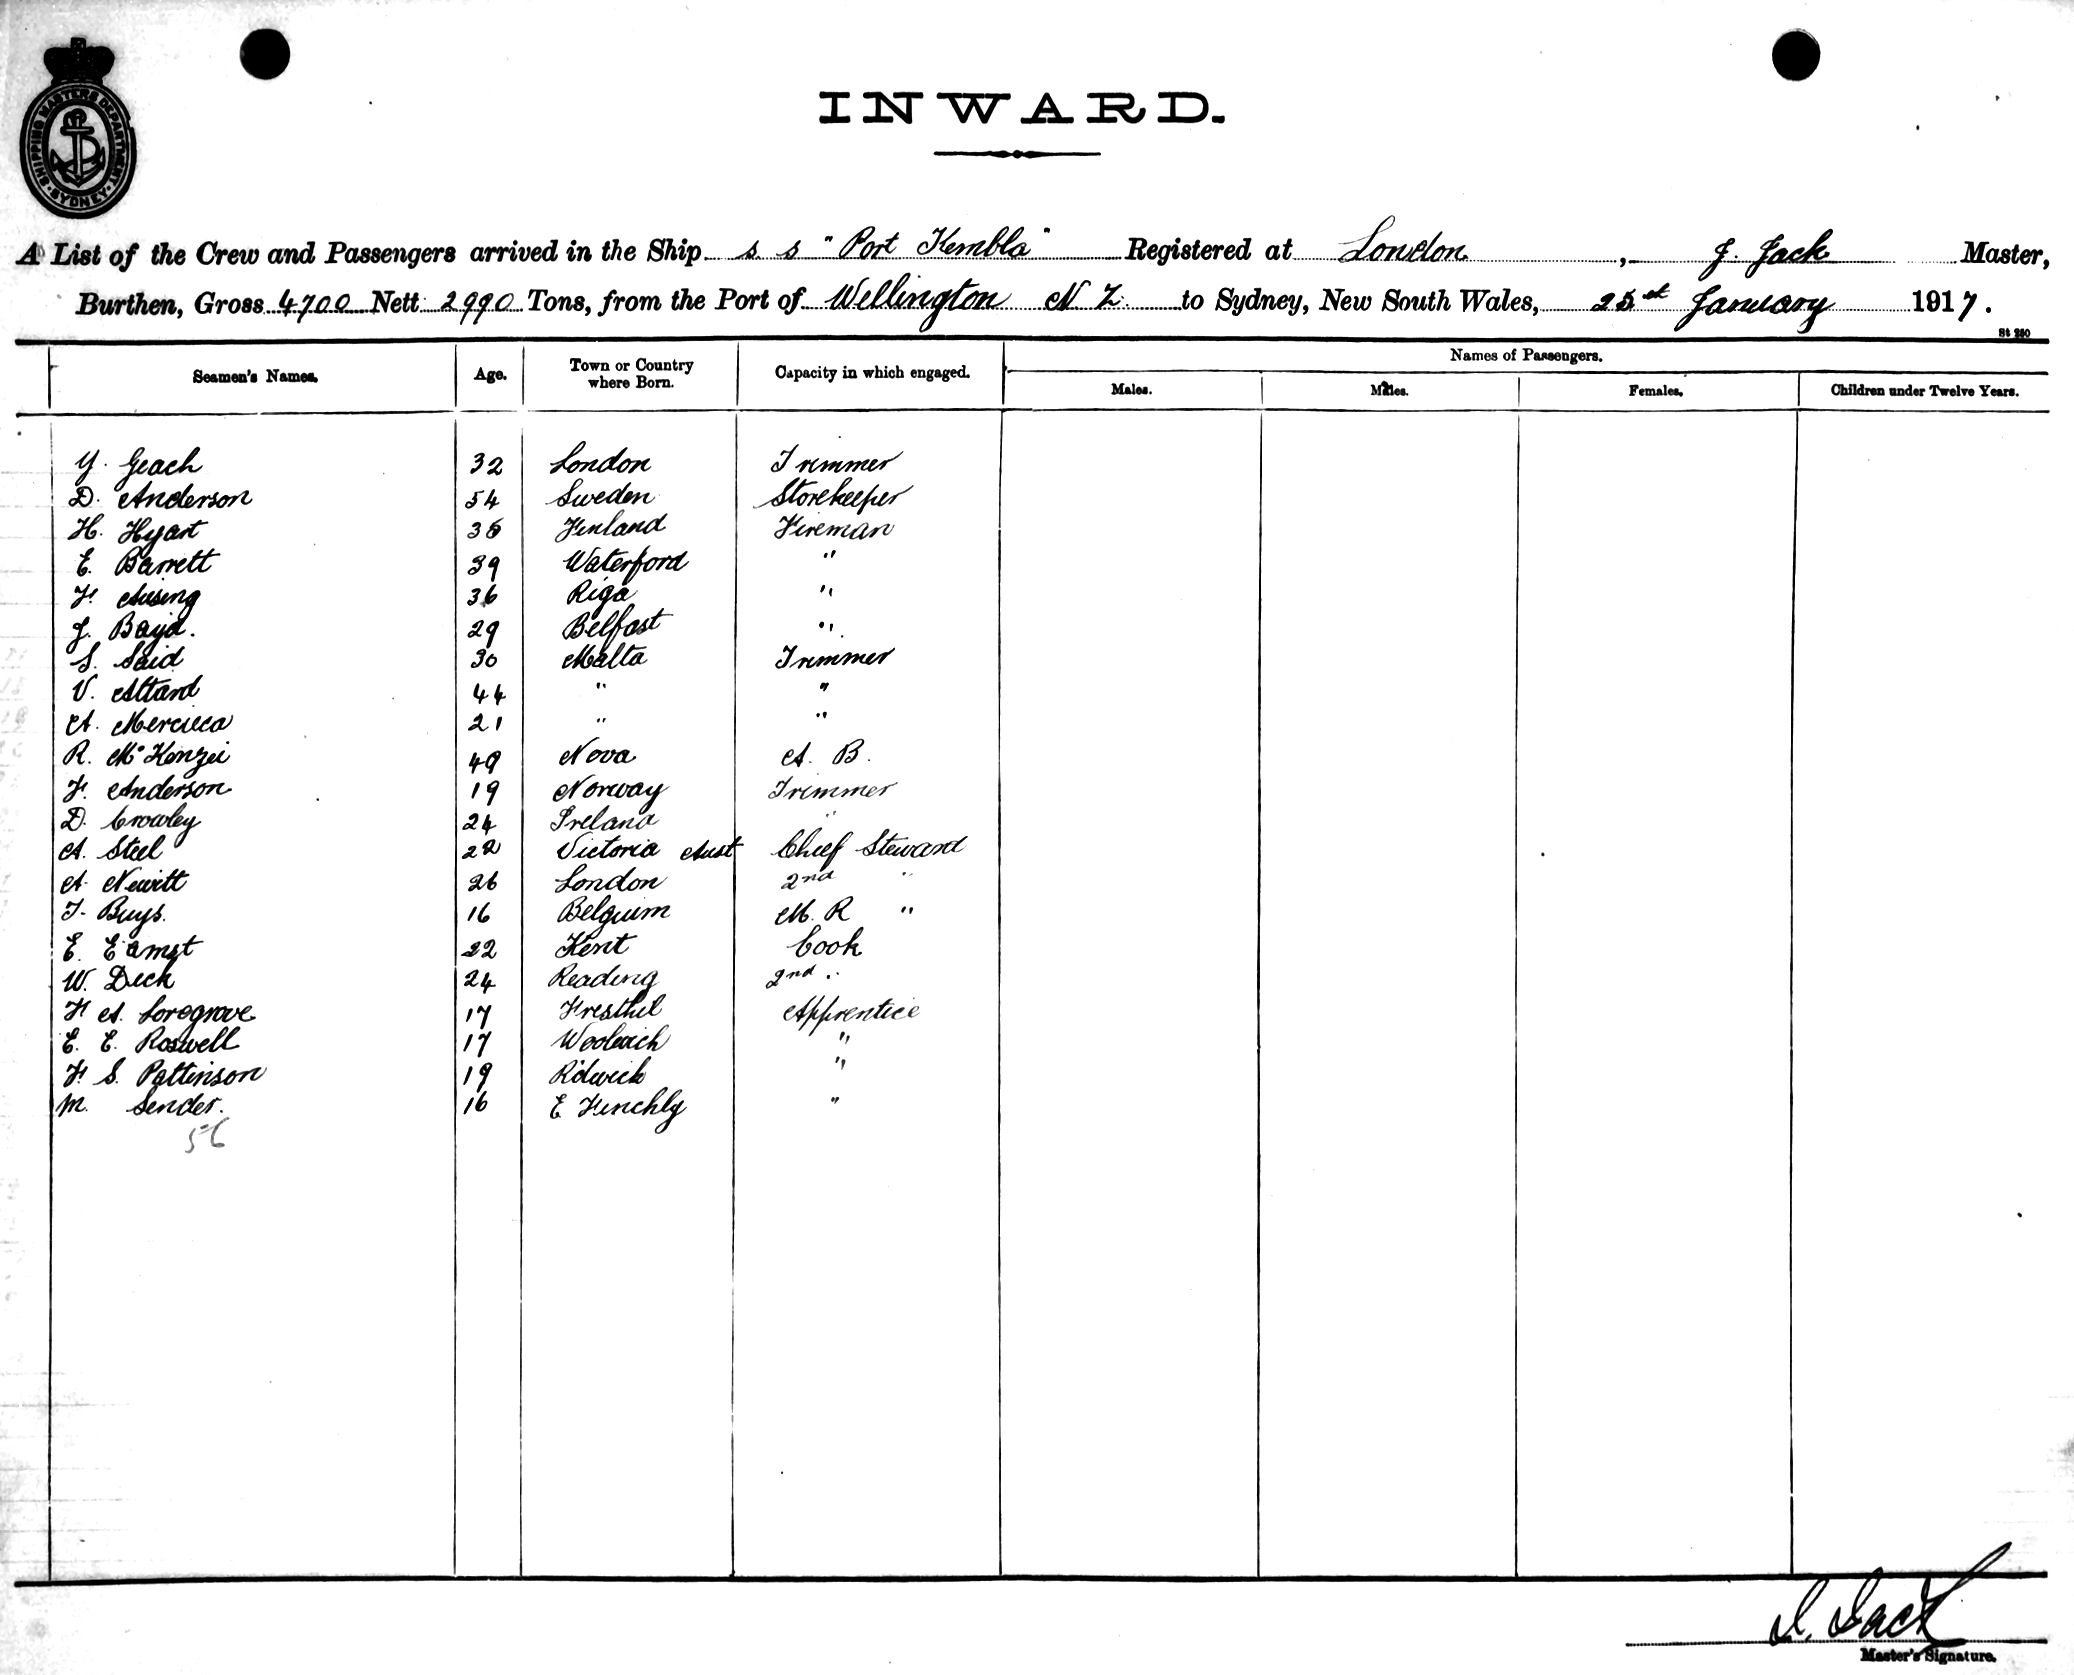 SHIPPING MASTERS DEPARTMENT · SYDNEY ·
INWARD.
A List of the Crew and Passengers arrived in the Ship s. s "Port Kembla" Registered at London, J. Jack Master,
Burthen, Gross 4700 Nett 2990 Tons, from the Port of Wellington N Z. to Sydney, New South Wales, 25th January 1917.
St 280
Seamen's Names. Age. Town or Country where Born. Capacity in which engaged. Names of Passengers.
Males. Males. Females. Children under Twelve Years.
Y. Geach 32 London Trimmer
D. Anderson 54 Sweden Storekeeper
H. Hyart 36 Finland Fireman
E. Barrett 39 Waterford "
F. Ausing 36 Riga "
J. Boyd. 29 Belfast "
S. Said 30 Malta Trimmer
V. Attard 44 " "
A. Mercieca 21 " "
R. McKenzei 49 Nova A. B.
F. Anderson 19 Norway Trimmer
D. Crowley 24 Ireland "
A. Steel 22 Victoria Aust Chief Steward
A. Newitt 26 London 2nd "
T. Buys. 16 Belguim M. R "
E. 22 Kent Cook
W. Deck 24 Reading 2nd "
F A. Loregrove 17 Apprentice
E. E. Roswell 17 Woolwich "
F. S. Pattinson 19 "
M. Sender. 16 E Finchly "
56
J. Jack
Master's Signature.